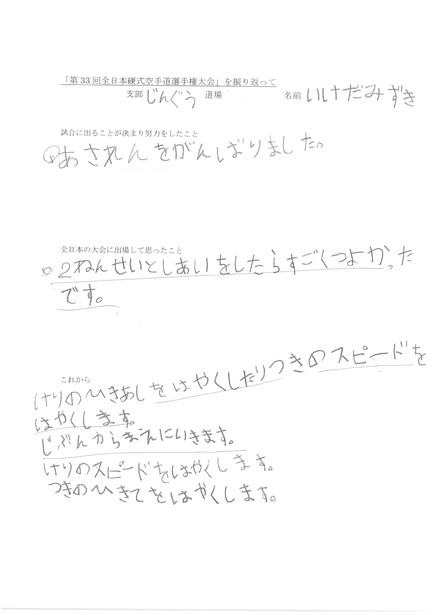 「第33回全日本硬式空手道選手権大会」を振り返って
支部 じんぐう 道場 名前 いけだみずき
試合に出ることが決まり努力をしたこと
あされんをがんばりました。
全日本の大会に出場して思ったこと
2ねんせいとしあいをしたらすごくつよかった
です。
これから
けりのひきあしをはやくしたりつきのスピードを
はやくします。
じぶんからまえにいきます。
けりのスピードをはやくします。
つきのひきてをはやくします。